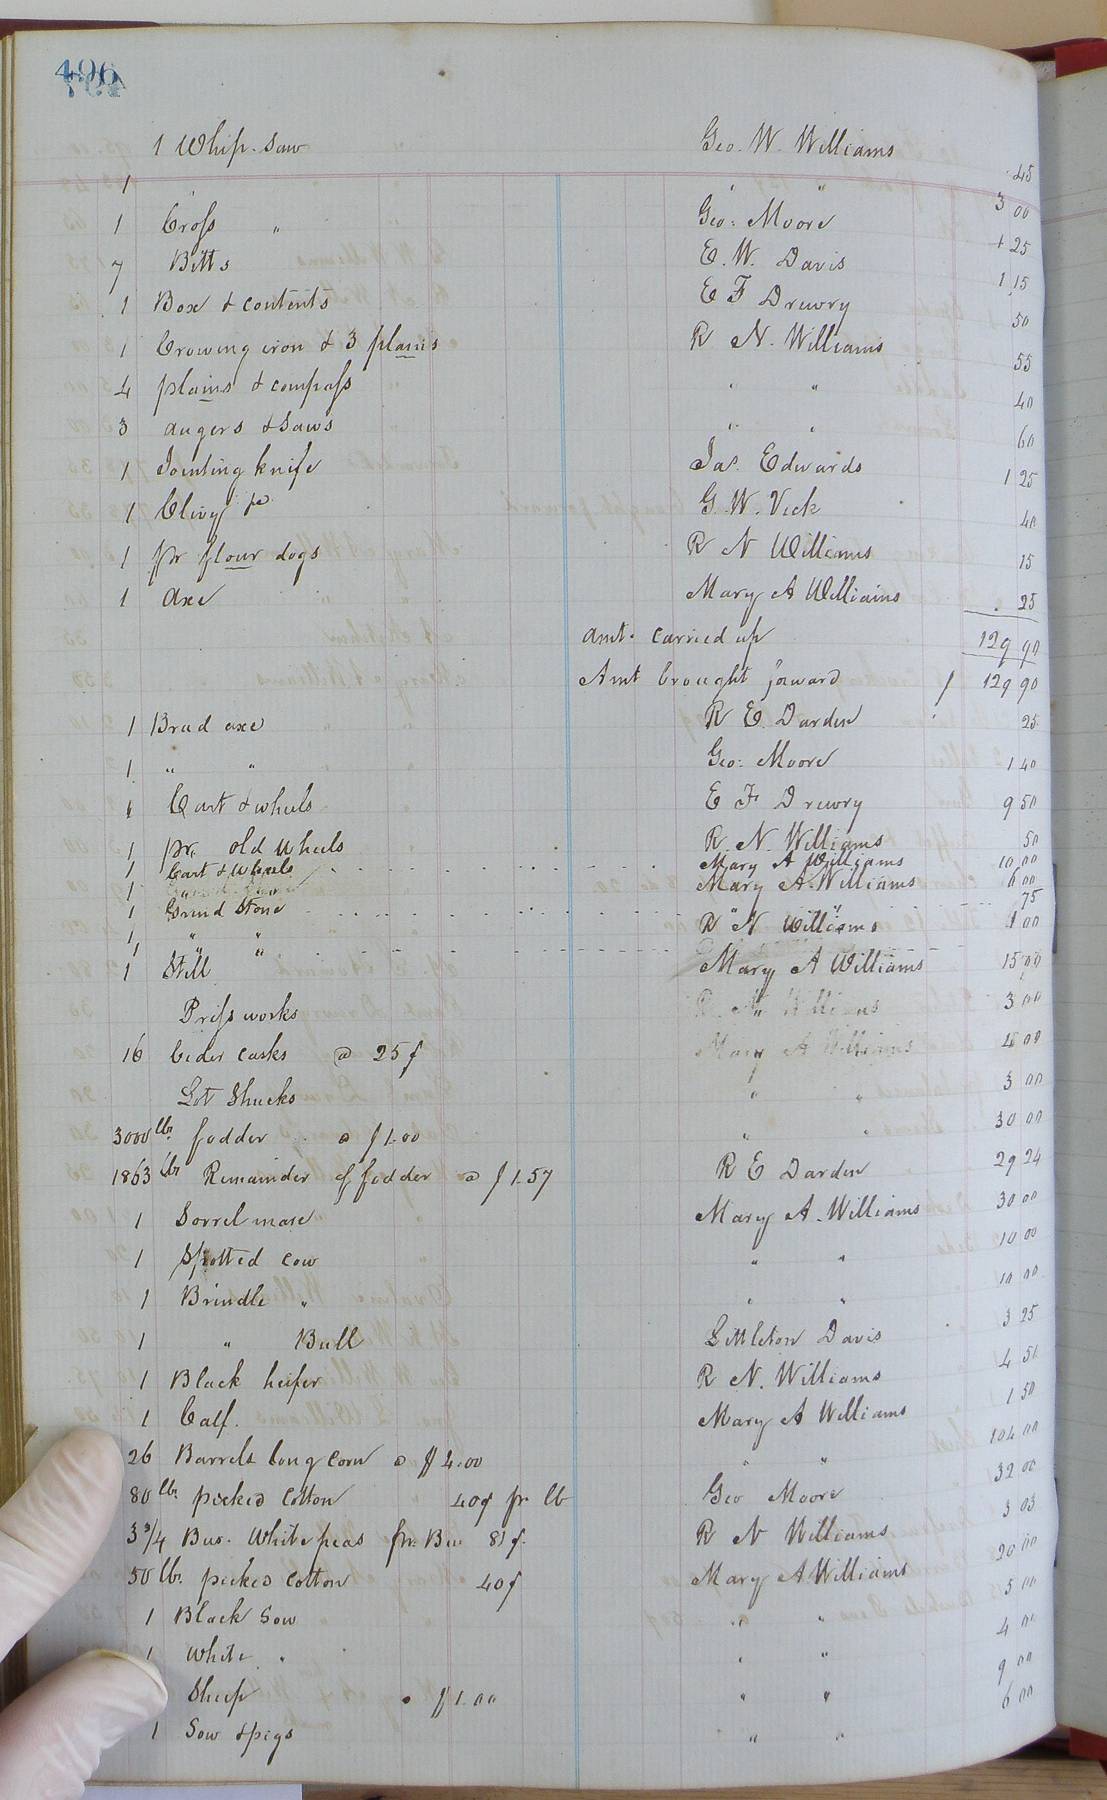 496
1 Whip. Saw Geo. W. Williams 45
1 " " " 3 00
1 Cross " Geo: Moore + 25
7 Bitts E. W. Davis 1 15
1 Box & contents E F Drewry 50
1 Crowing iron & 3 plains R N. Williams 55
4 plains & compass " " 40
3 augers & Saws " " 60
1 Jointing knife Jas. Edwards 1 25
1 G. W. Vick 40
1 pr flour dogs R N Williams 15
1 Axe Mary A Williams 25
Amt. carried up 129 90
Amt brought forward $ 129 90
1 Brad axe R E. Darden 25
1 " " Geo: Moore 1 40
1 Cart & wheels E F Drewry 9 50
1 pr. old Wheels R. N. Williams 50
1 Cart & Wheels Mary A Williams 10 00
1 Mary A. Williams 6 00
1 Grind Stone " " 75
1 " " R N Williams 1 00
1 Still Mary A Williams 15 00
Press works R. N. Williams 3 00
16 Cider casks @ 25¢ Mary A Williams 4 00
Lot Shucks " " 3 00
3000 lbs. fodder @ $1.00 " " 30 00
1863 lbs Remainder of fodder @ $1.57 R E Darden 29 24
1 Sorrel mare Mary A. Williams 30 00
1 Spotted cow " " 10 00
1 Brindle " " " 10 00
1 " Bull Littleton Davis 3 25
1 Black heifer R N. Williams 4 50
1 Calf. Mary A Williams 1 50
26 Barrels long corn @ $4.00 " " 104 00
80 lbs. picked Cotton 40¢ pr lb Geo Moore 32 00
3 3/4 Bus. White peas pr. Bus 81¢. R N Williams 3 03
50 lbs. picked Cotton 40¢ Mary A Williams 20 00
1 Black Sow " " 5 00
1 White " " " 4 00
Sheep @ $1.00 " " 9 00
1 Sow & pigs " " 6 00